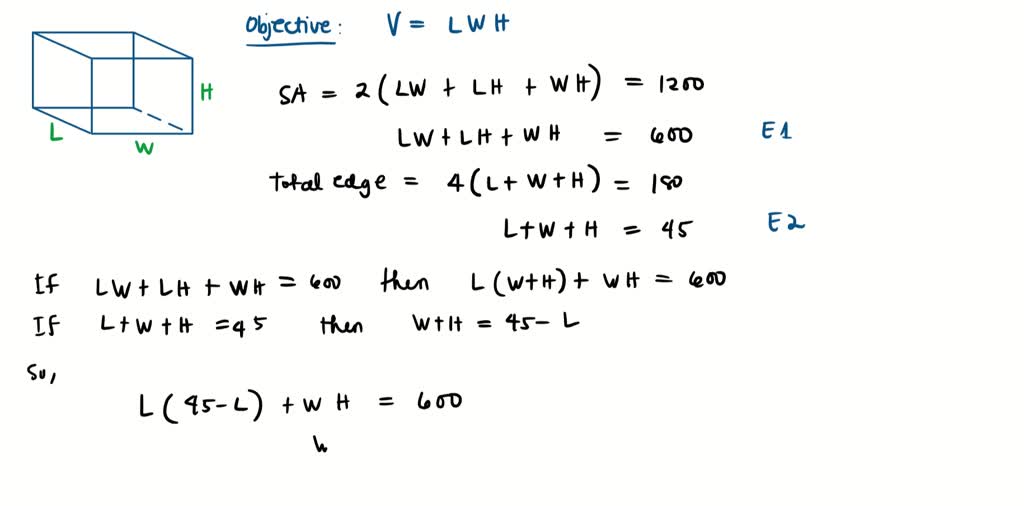 Objective: V = LWH
SA = 2(LW + LH + WH) = 1200
H
LW + LH + WH = 600 E1
L
W
Total edge = 4(L+W+H) = 180
L+W+H = 45 E2
If LW + LH + WH = 600 then L(W+H) + WH = 600
If L+W+H = 45 then W+H = 45-L
So,
L(45-L) + WH = 600
W